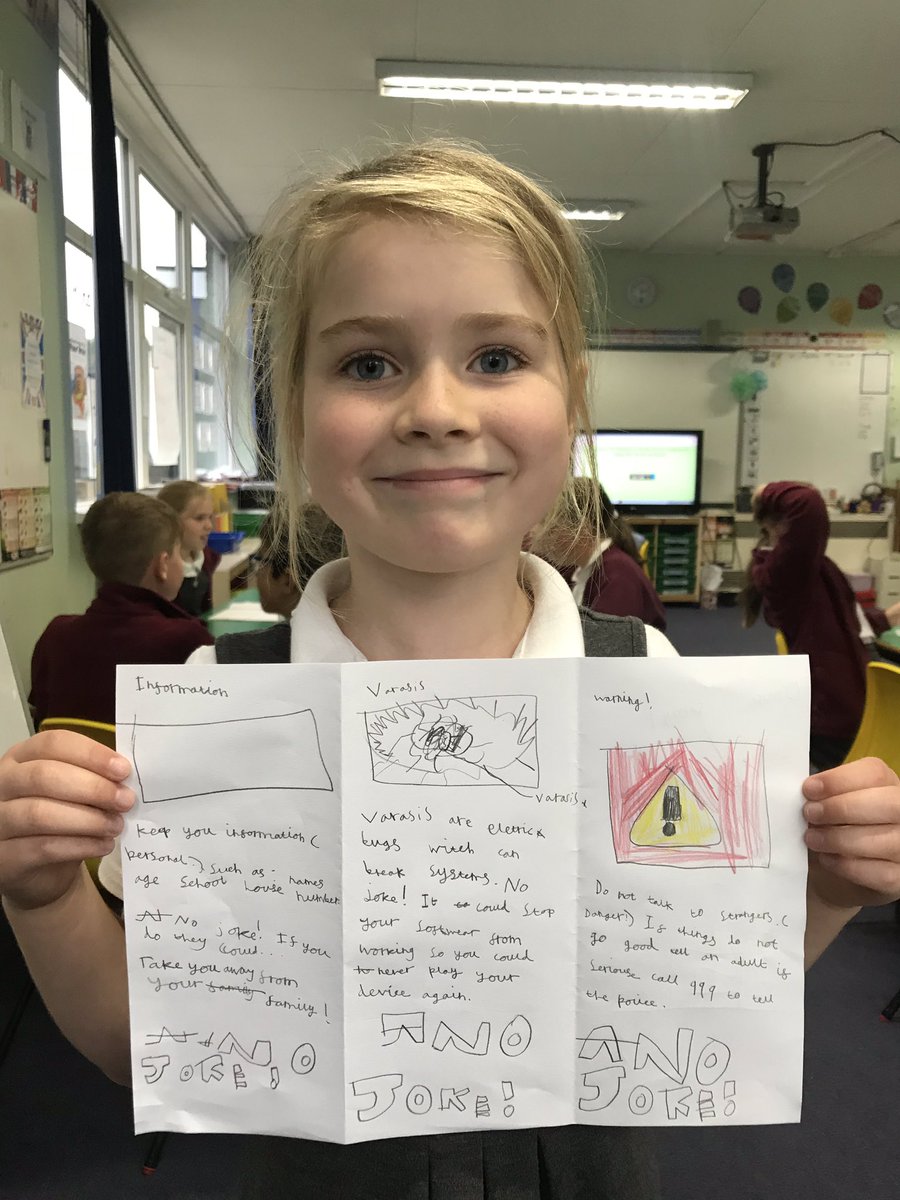 Information
Keep you information (
personal.) Such as - names
age School house number
No joke! If you
do they could...
Take you away from
your family family!
NO
JOKE!
Varasis
Varasis
Varasis are elettrick
bugs witch can
break systems. No
joke! It to could stop
your softwear from
working so you could
to never play your
device again.
NO
JOKE!
warning!
Do not talk to strangers. (
Danger!) If things do not
go good tell an adult if
seriouse call 999 to tell
the police.
A NO
JOKE!